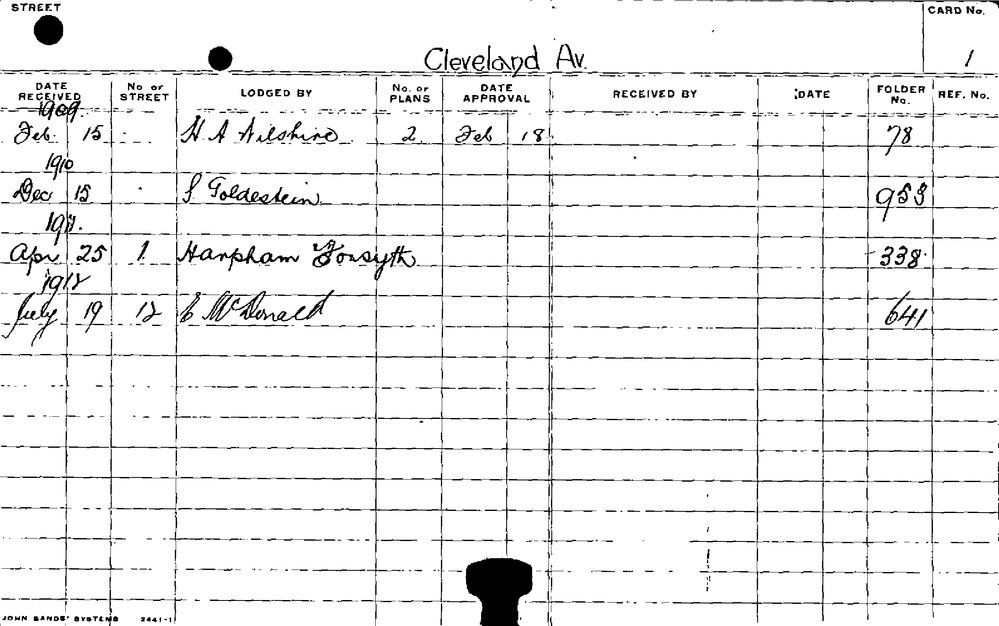 STREET
CARD No.
Cleveland Av.
1
DATE RECEIVED No OF STREET LODGED BY No. OF PLANS DATE APPROVAL RECEIVED BY DATE FOLDER No. REF. No.
1909.
Feb. 15 H A Wilshire 2 Feb 18 78
1910
Dec 15 S Goldestein 953
1911.
Apr 25 1 Harpham Forsyth 338
1912
July 19 12 E McDonald 641
JOHN SANDS' SYSTEMS 2441-1